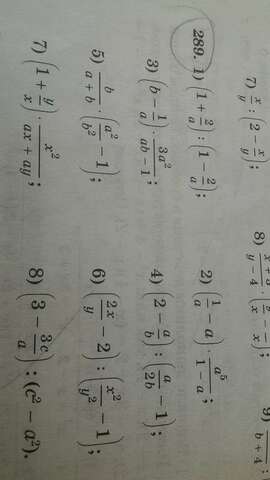 7) x/y : (2 − x/y); 8) 9)
289. 1) (1 + 2/a) : (1 − 2/a); 2) (1/a − a) · a⁵/(1 − a);
3) (b − 1/a) · 3a²/(ab − 1); 4) (2 − a/b) : (a/2b − 1);
5) b/(a + b) · (a²/b² − 1); 6) (2x/y − 2) : (x²/y² − 1);
7) (1 + y/x) · x²/(ax + ay); 8) (3 − 3c/a) : (c² − a²).